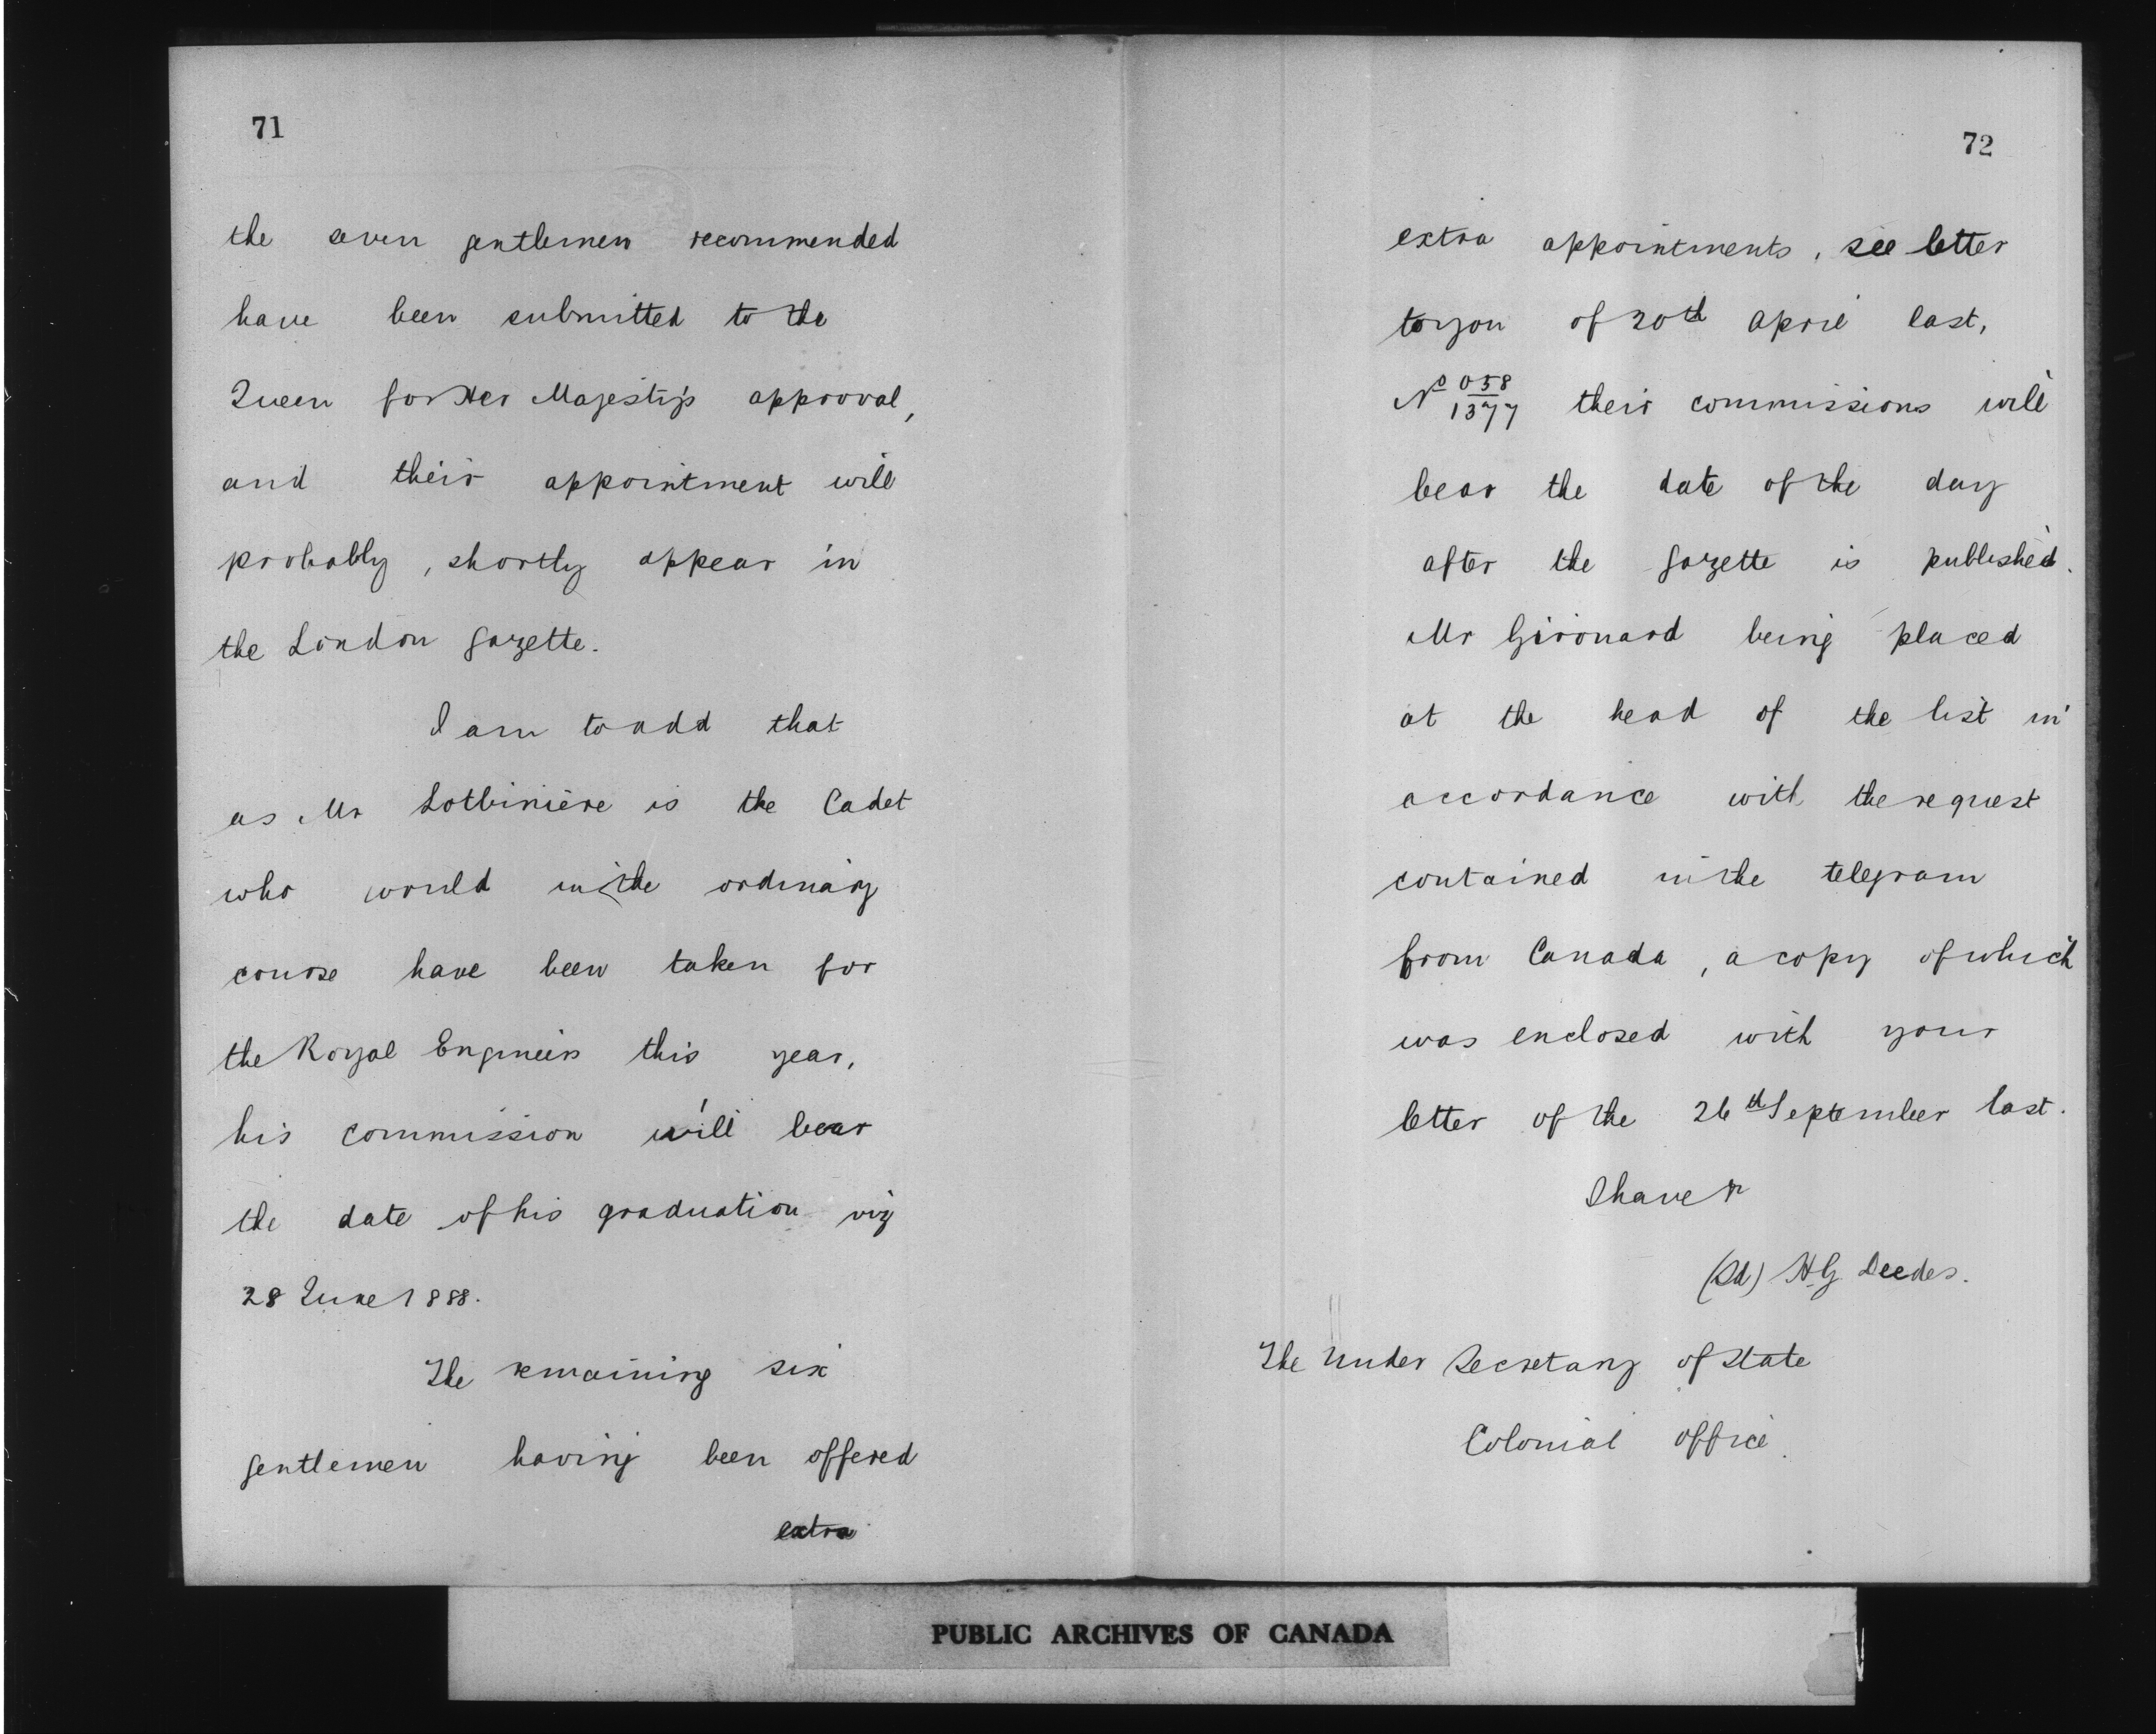 71
the seven gentlemen recommended
have been submitted to the
Queen for Her Majesty's approval,
and their appointment will
probably, shortly appear in
the London Gazette.
I am to add that
as Mr Lotbinière is the Cadet
who would in the ordinary
course have been taken for
the Royal Engineers this year,
his commission will bear
the date of his graduation viz
28 June 1888.
The remaining six
gentlemen having been offered
extra
72
extra appointments, see letter
to you of 20th April last,
No 058/1377 their commissions will
bear the date of the day
after the Gazette is published.
Mr Girouard being placed
at the head of the list in
accordance with the request
contained in the telegram
from Canada, a copy of which
was enclosed with your
letter of the 26th September last.
I have &
(Sd) H G Deedes.
The Under Secretary of State
Colonial Office.
PUBLIC ARCHIVES OF CANADA